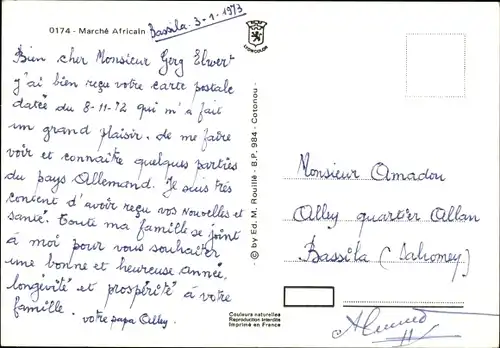 0174 - Marché Africain
Bassila 3-1-1973
LYONCOLOR
Bien cher Monsieur Gerg Elwert
j'ai bien reçu votre carte postale
datée du 8-11-72 qui m'a fait
un grand plaisir. de me faire
voir et connaitre quelques parties
du pays Allemand. Je suis très
content d'avoir reçu vos Nouvelles et
santé. Toute ma famille se joint
à moi pour vous souhaiter
une bonne et heureuse année,
longivité et prospérité à votre
famille.
votre papa Alley.
© by Ed. M. Rouillé - B.P. 984 - Cotonou -
Monsieur Amadou
Alley quartier Allan
Bassila (Dahomey)
Couleurs naturelles
Reproduction interdite
Imprimé en France